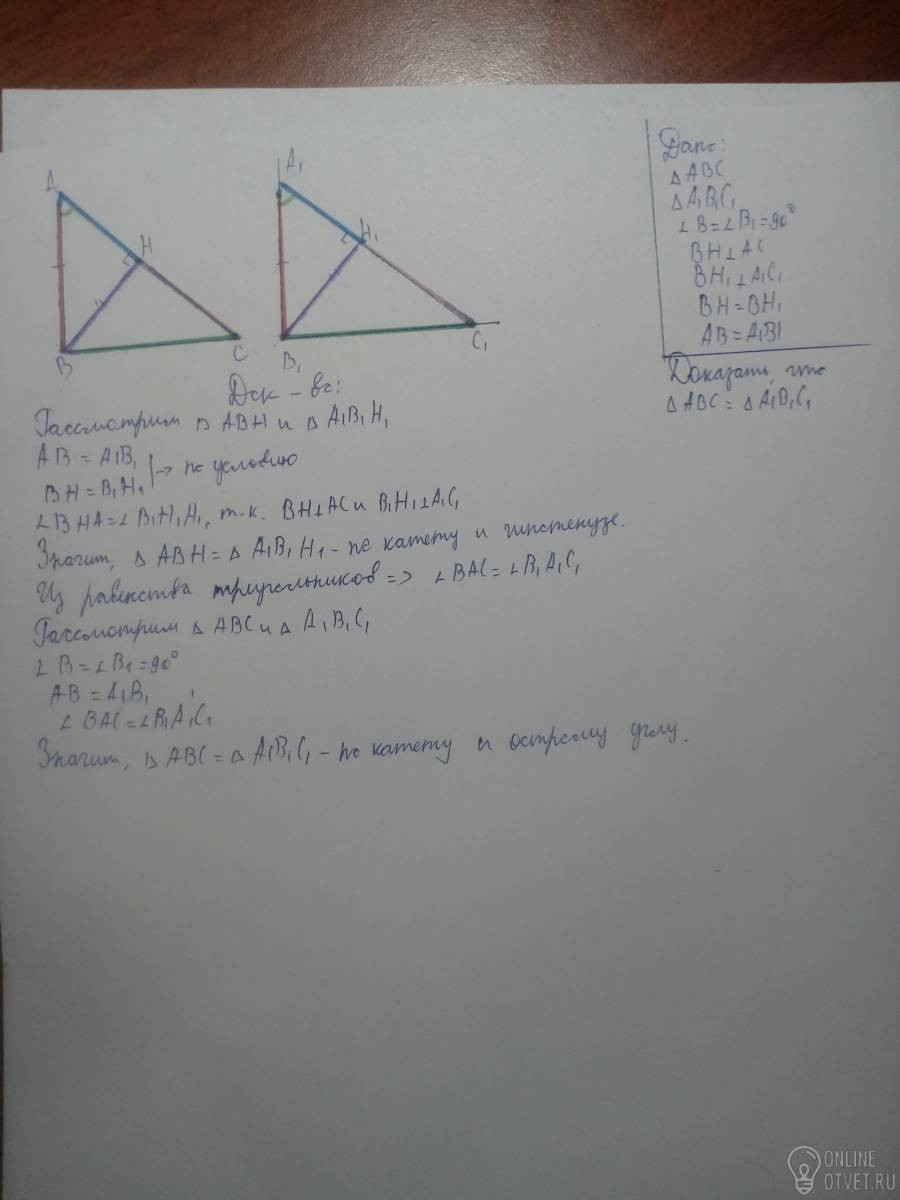 A
H
B
C
A₁
H₁
B₁
C₁
Дано:
△ ABC
△ A₁B₁C₁
∠ B = ∠ B₁ = 90°
BH ⊥ AC
BH₁ ⊥ A₁C₁
BH = BH₁
AB = A₁B1
Доказать, что
△ ABC = △ A₁B₁C₁
Док-во:
Рассмотрим △ ABH и △ A₁B₁H₁
AB = A₁B₁
BH = B₁H₁ |→ по условию
∠ BHA = ∠ B₁H₁H₁, т.к. BH ⊥ AC и B₁H₁ ⊥ A₁C₁
Значит, △ ABH = △ A₁B₁H₁ - по катету и гипотенузе.
Из равенства треугольников => ∠ BAC = ∠ B₁A₁C₁
Рассмотрим △ ABC и △ A₁B₁C₁
∠ B = ∠ B₁ = 90°
AB = A₁B₁
∠ BAC = ∠ B₁A₁C₁
Значит, △ ABC = △ A₁B₁C₁ - по катету и острому углу.
ONLINE
OTVET.RU